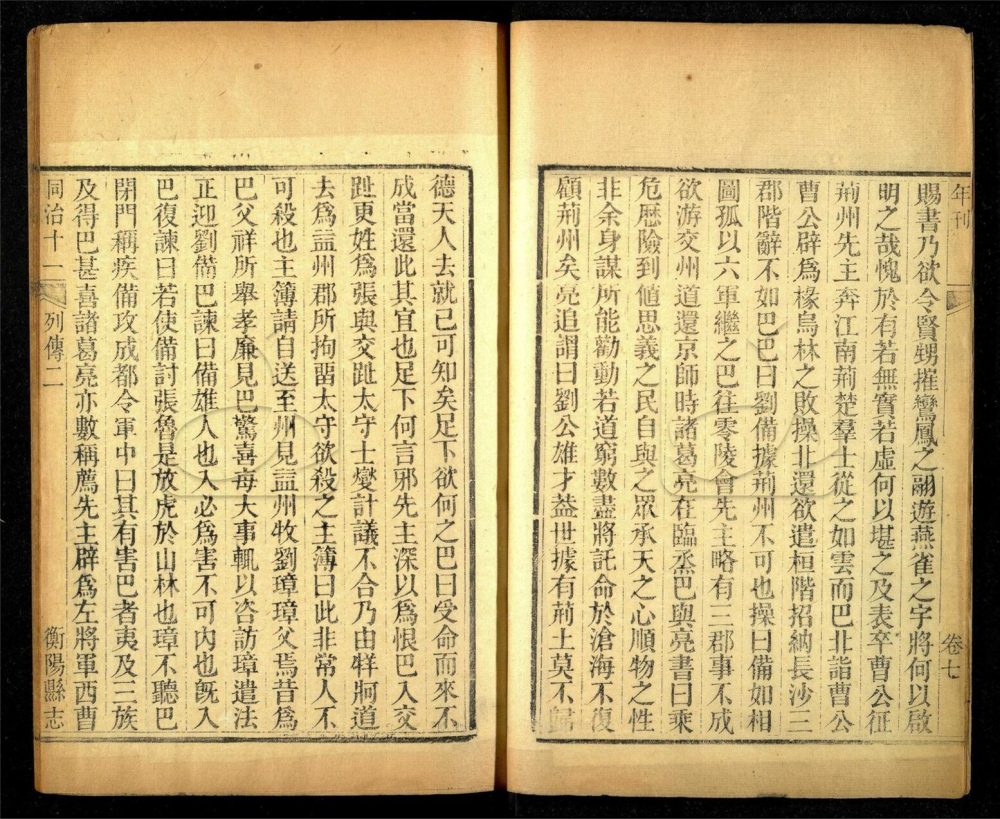 年刊
卷七
賜書乃欲令賢甥摧鸞鳳之翮遊燕雀之宇將何以啟
明之哉愧於有若無實若虛何以堪之及表卒曹公征
荊州先主奔江南荊楚羣士從之如雲而巴北詣曹公
曹公辟爲椽烏林之敗操北還欲遣桓階招納長沙三
郡階辭不如巴巴曰劉備據荊州不可也操曰備如相
圖孤以六軍繼之巴往零陵會先主略有三郡事不成
欲游交州道還京師時諸葛亮在臨烝巴與亮書曰乘
危歷險到值思義之民自與之眾承天之心順物之性
非余身謀所能勸動若道窮數盡將託命於滄海不復
顧荊州矣亮追謂曰劉公雄才葢世據有荊土莫不歸
德天人去就已可知矣足下欲何之巴曰受命而來不
成當還此其宜也足下何言邪先主深以爲恨巴入交
趾更姓爲張與交趾太守士燮計議不合乃由牂牁道
去爲益州郡所拘畱太守欲殺之主簿曰此非常人不
可殺也主簿請自送至州見益州牧劉璋璋父焉昔爲
巴父祥所舉孝廉見巴驚喜每大事輒以咨訪璋遣法
正迎劉備巴諫曰備雄人也入必爲害不可內也旣入
巴復諫曰若使備討張魯是放虎於山林也璋不聽巴
閉門稱疾備攻成都令軍中曰其有害巴者夷及三族
及得巴甚喜諸葛亮亦數稱薦先主辟爲左將軍西曹
同治十一
列傳二
衡陽縣志